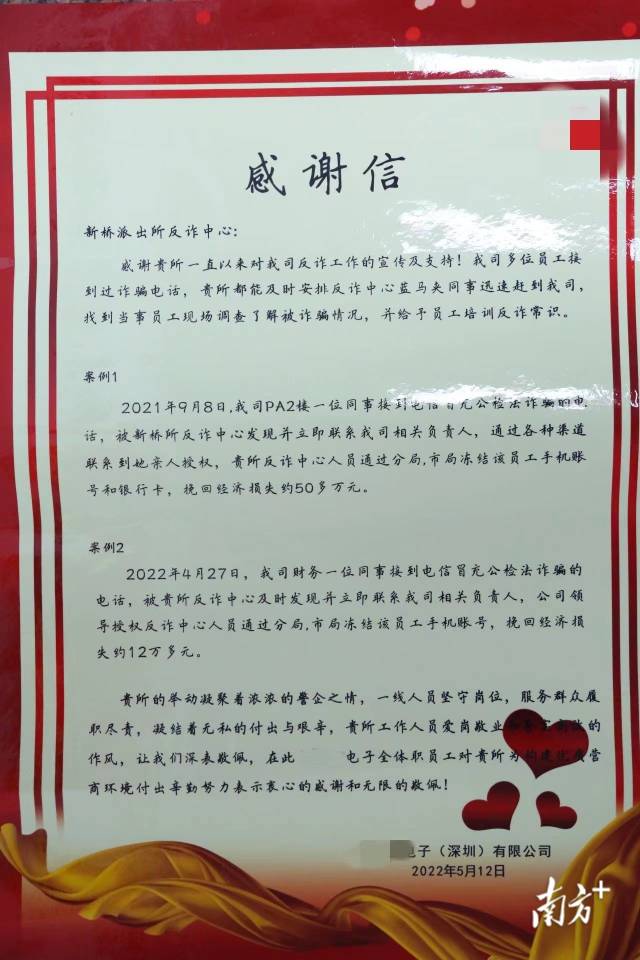 南方+
感谢信
新桥派出所反诈中心：
感谢贵所一直以来对我司反诈工作的宣传及支持！我司多位员工接
到过诈骗电话，贵所都能及时安排反诈中心蓝马夹同事迅速赶到我司，
找到当事员工现场调查了解被诈骗情况，并给予员工培训反诈常识。
案例1
2021年9月8日,我司PA2楼一位同事接到电信冒充公检法诈骗的电
话，被新桥所反诈中心发现并立即联系我司相关负责人，通过各种渠道
联系到她亲人授权，贵所反诈中心人员通过分局,市局冻结该员工手机账
号和银行卡，挽回经济损失约50多万元。
案例2
2022年4月27日，我司财务一位同事接到电信冒充公检法诈骗的
电话，被贵所反诈中心及时发现并立即联系我司相关负责人，公司领
导授权反诈中心人员通过分局,市局冻结该员工手机账号，挽回经济损
失约12万多元。
贵所的举动凝聚着浓浓的警企之情，一线人员坚守岗位，服务群众履
职尽责，凝结着无私的付出与艰辛，贵所工作人员爱岗敬业的
作风，让我们深表敬佩，在此 电子全体职员工对贵所为构建优质营
商环境付出辛勤努力表示衷心的感谢和无限的敬佩！
电子（深圳）有限公司
2022年5月12日
南方+